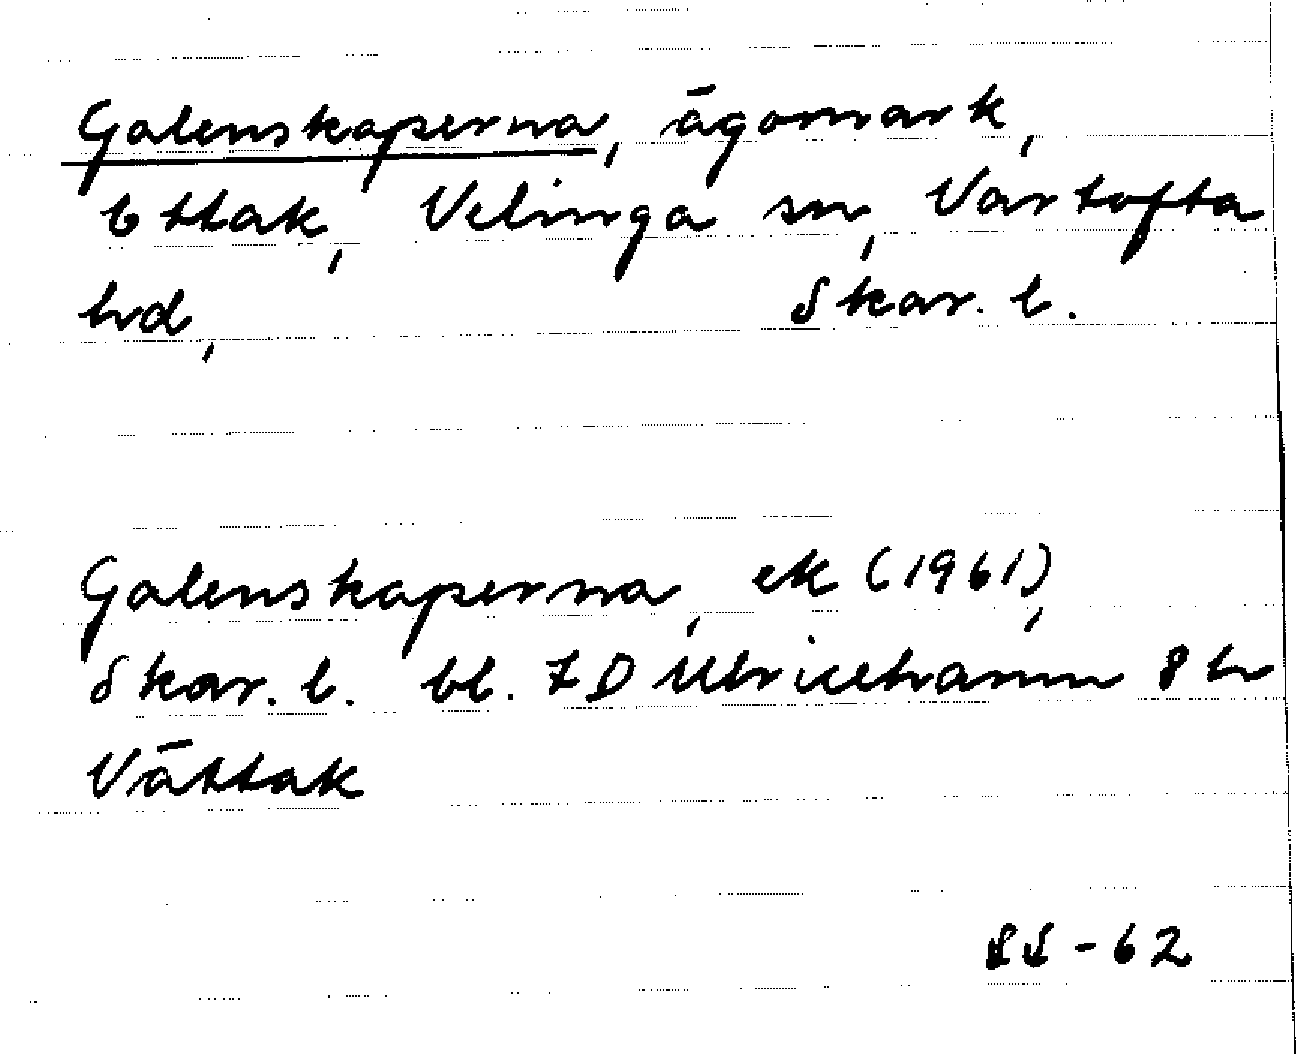 Galenskaperna, ägomark,
Vättak, Velinga sn, Vartofta
hd, Skar. l.
Galenskaperna, ek (1961),
Skar. l. bl. 7D Ulricehamn 8 h
Vättak
SS-62